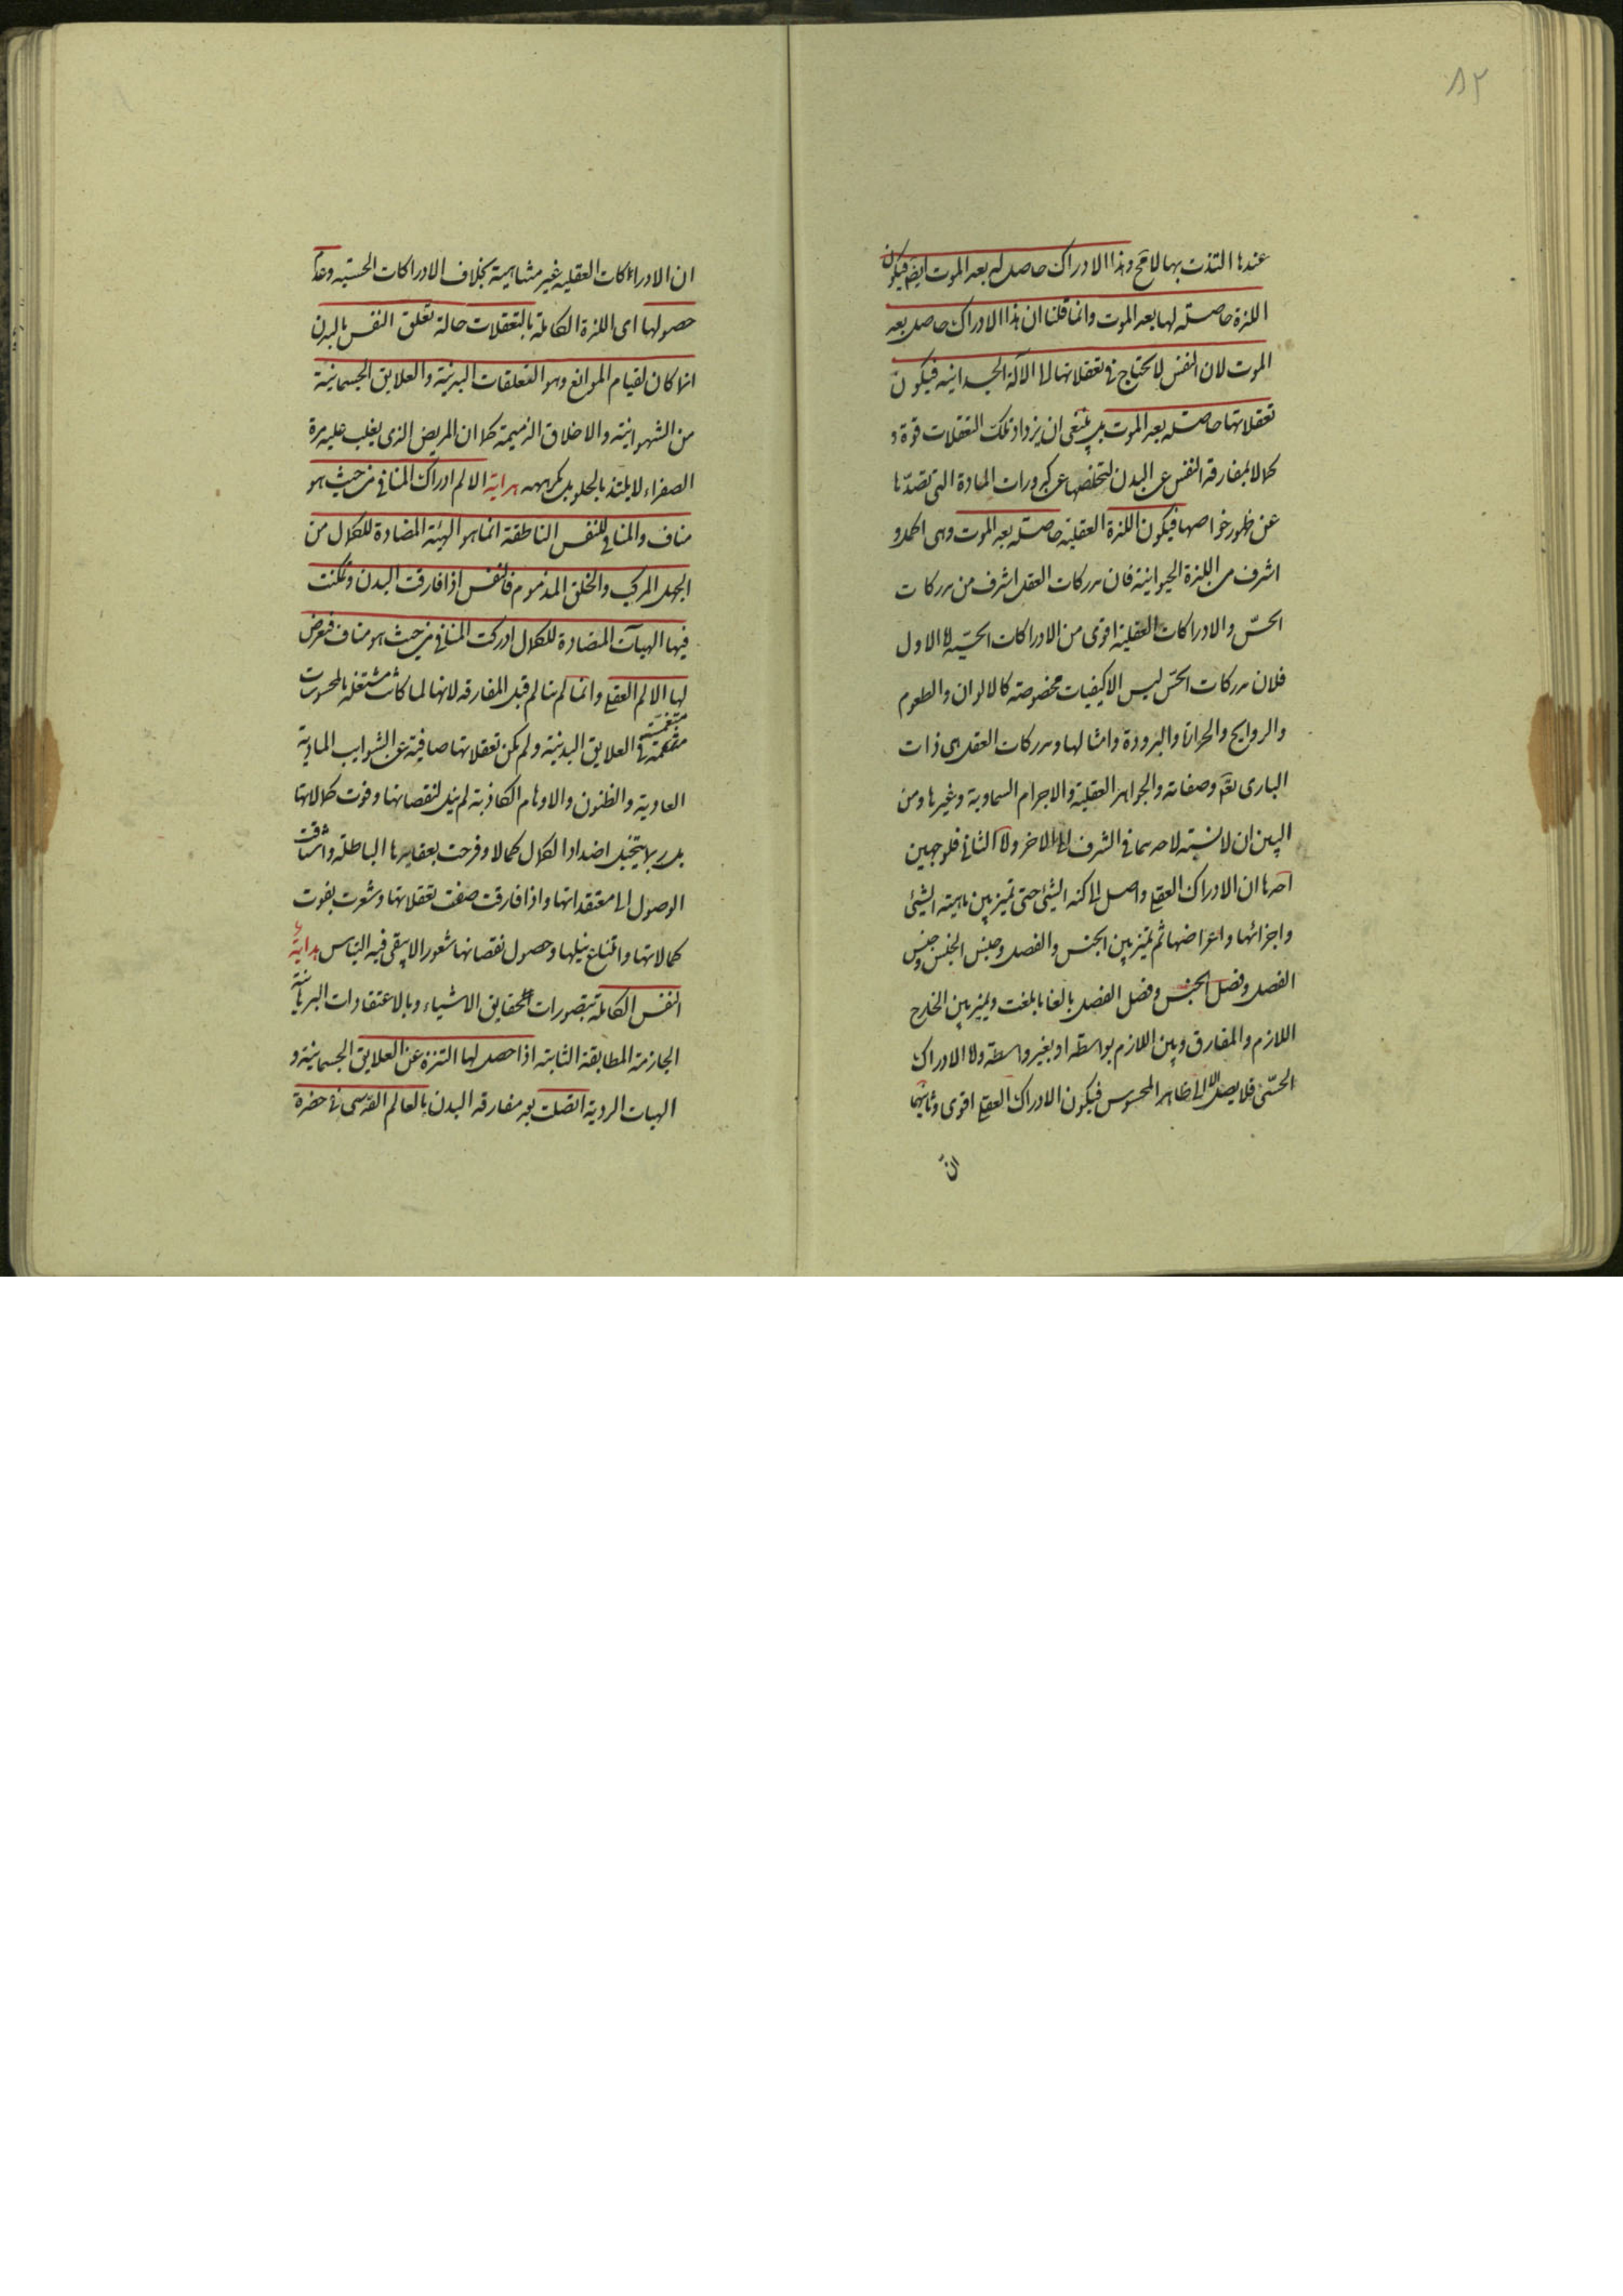 ٨٢
عندها التذت بها لا مح وهذا الادراك حاصل لها بعد الموت ايضا فيكون
اللذة حاصلة لها بعد الموت وانما قلنا ان هذا الادراك حاصل بعد
الموت لان النفس لا تحتاج في تعقلاتها الى الآلة الجسدانية فيكون
تعقلاتها حاصلة بعد الموت بل ينبغي ان يزداد تلك التعقلات قوة و
كمالا بمفارقة النفس عن البدن لتخلصها عن كدورات المادة التي تصدها
عن ظهور خواصها فيكون اللذة العقلية حاصلة بعد الموت وهي اكمل و
اشرف من اللذة الحيوانية فان مدركات العقل اشرف من مدركات
الحسّ والادراكات العقلية اقوى من الادراكات الحسّية اما الاول
فلان مدركات الحسّ ليس الا كيفيات مخصوصة كالالوان والطعوم
والروايح والحرارة والبرودة وامثالها ومدركات العقل هي ذات
البارى تعه وصفاته والجواهر العقلية والاجرام السماوية وغيرها ومن
البين ان لا نسبة لاحدهما في الشرف الى الاخر واما الثاني فلوجهين
احدها ان الادراك العقلي واصل الى كنه الشيئ حتى تميز بين ماهية الشيئ
واجزائها واعراضها ثم تميز بين الجنس والفصل وجنس الجنس وجنس
الفصل وفصل الجنس وفصل الفصل بالغا ما بلغت ويميز بين الخارج
اللازم والمفارق وبين اللازم بواسطة او بغير واسطة واما الادراك
الحسّي فلا يصل الا الى ظاهر المحسوس فيكون الادراك العقلي اقوى وثانيهما
انّ
ان الادراكات العقلية غير متناهية بخلاف الادراكات الحسّية وعدم
حصولها اى اللذة الكاملة بالتعقلات حالة تعلق النفس بالبدن
انما كان لقيام الموانع وهو التعلقات البدنية والعلايق الجسمانية
من الشهوانية والاخلاق الذميمة كما ان المريض الذى يغلب عليه مرة
الصفراء لا يلتذ بالحلو بل يكرهه هداية الالم ادراك المنافي من حيث هو
مناف والمنافي للنفس الناطقة انما هو الهيئة المضادة للكمال من
الجهل المركب والخلق المذموم فالنفس اذا فارقت البدن وتمكنت
فيها الهيآت المضادة للكمال ادركت المنافي من حيث هو مناف فيعرض
لها الالم العقلي وانما لم يتالم قبل المفارقة لانها لما كانت مشتغلة بالمحسوسات
منغمسة في العلايق البدنية ولم يكن تعقلاتها صافية عن الشوايب المادية
العادية والظنون والاوهام الكاذبة لم ينل لنقصانها وفوت كمالاتها
بل ربما يتخيل اضداد الكمال كمالا وفرحت بعقايدها الباطلة واشتاقت
الوصول الى معتقداتها واذا فارقت صفت تعقلاتها وشعرت بفوت
كمالاتها وامتناع نيلها وحصول نقصانها شعورا لا يبقى فيه التباس هداية
النفس الكاملة بتصورات حقايق الاشياء وبالاعتقادات البرهانية
الجازمة المطابقة الثابتة اذا حصل لها التنزه عن العلايق الجسمانية و
الهيات الردية اتصلت بعد مفارقة البدن بالعالم القدسى في حضرة